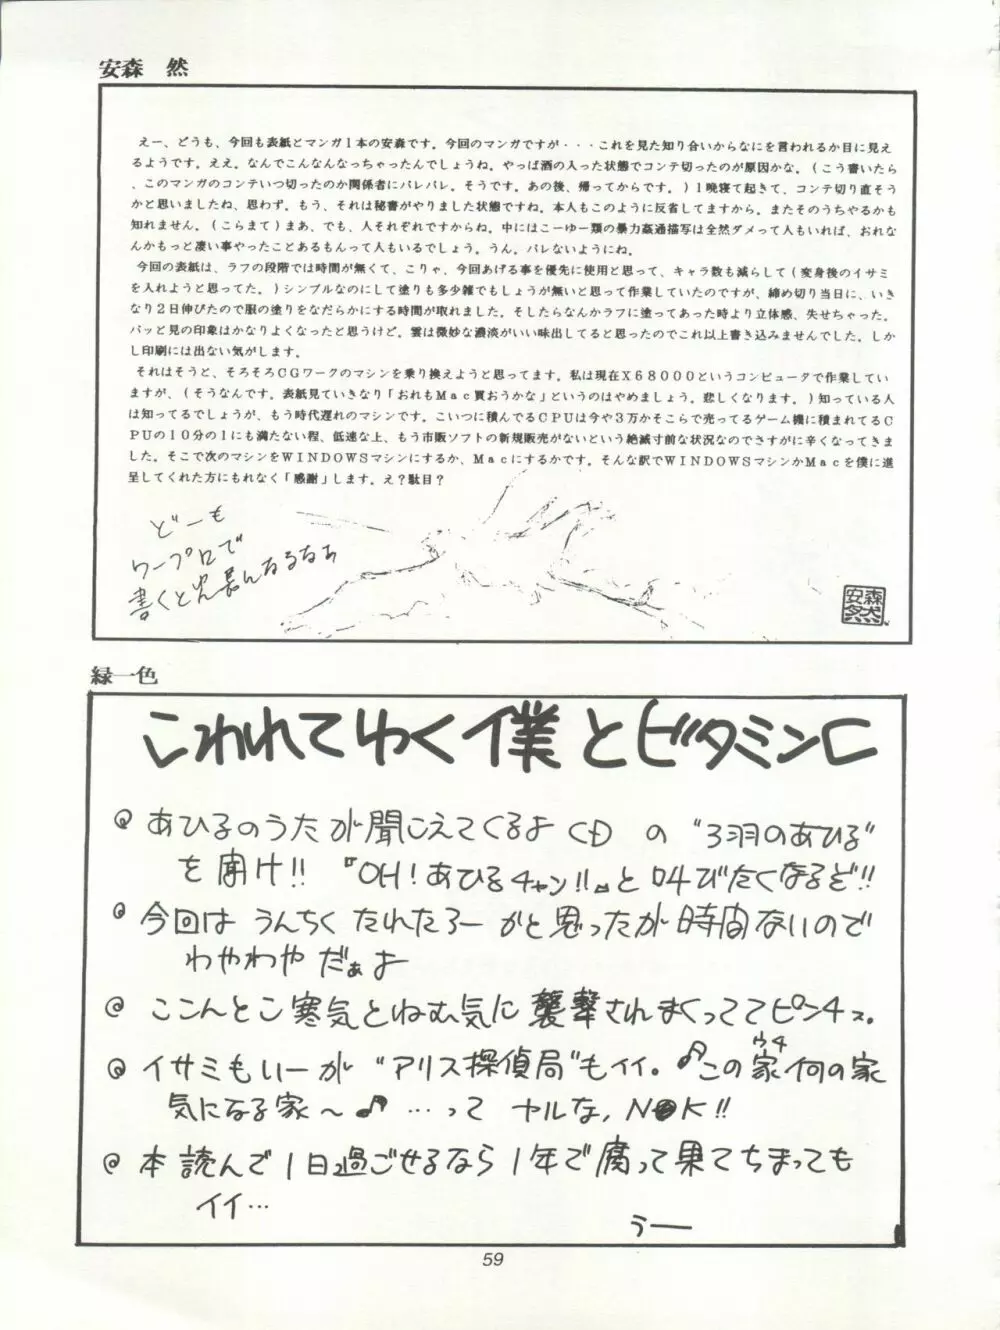 安森　然
えー、どうも、今回も表紙とマンガ１本の安森です。今回のマンガですが・・・これを見た知り合いからなにを言われるか目に見え
るようです。ええ。なんでこんなんなっちゃったんでしょうね。やっぱ酒の入った状態でコンテ切ったのが原因かな。（こう書いたら
、このマンガのコンテいつ切ったのか関係者にバレバレ。そうです。あの後、帰ってからです。）１晩寝て起きて、コンテ切り直そう
かと思いましたね、思わず。もう、それは秘書がやりました状態ですね。本人もこのように反省してますから。またそのうちやるかも
知れません。（こらまて）まあ、でも、人それぞれですからね。中にはこーゆー類の暴力姦通描写は全然ダメって人もいれば、おれな
んかもっと凄い事やったことあるもんって人もいるでしょう。うん。バレないようにね。
今回の表紙は、ラフの段階では時間が無くて、こりゃ、今回あげる事を優先に使用と思って、キャラ数も減らして（変身後のイサミ
を入れようと思ってた。）シンプルなのにして塗りも多少雑でもしょうが無いと思って作業していたのですが、締め切り当日に、いき
なり２日伸びたので服の塗りをなだらかにする時間が取れました。そしたらなんかラフに塗ってあった時より立体感、失せちゃった。
パッと見の印象はかなりよくなったと思うけど。雲は微妙な濃淡がいい味出してると思ったのでこれ以上書き込みませんでした。しか
し印刷には出ない気がします。
それはそうと、そろそろＣＧワークのマシンを乗り換えようと思ってます。私は現在Ｘ６８０００というコンピュータで作業してい
ますが、（そうなんです。表紙見ていきなり「おれもＭａｃ買おうかな」というのはやめましょう。悲しくなります。）知っている人
は知ってるでしょうが、もう時代遅れのマシンです。こいつに積んでるＣＰＵは今や３万かそこらで売ってるゲーム機に積まれてるＣ
ＰＵの１０分の１にも満たない程、低速な上、もう市販ソフトの新規販売がないという絶滅寸前な状況なのでさすがに辛くなってきま
した。そこで次のマシンをＷＩＮＤＯＷＳマシンにするか、Ｍａｃにするかです。そんな訳でＷＩＮＤＯＷＳマシンかＭａｃを僕に進
呈してくれた方にもれなく「感謝」します。え？駄目？
どーも
ワープロで
書くと文長んなるなあ
安森然
緑一色
こわれてゆく僕とビタミンC
@ あひるのうたが聞こえてくるよ CD の "3羽のあひる"
を聞け!! 『OH!あひるチャン!!』と叫びたくなるぞ!!
@ 今回は うんちく たれたろー かと思ったが時間ないので
わやわや だぁよ
@ ここんとこ寒気とねむ気に襲撃されまくっててピンチっス。
@ イサミもいーが "アリス探偵局"もイイ。♪この家(ウチ)何の家
気になる家～♪ …って ヤルな,N●K!!
@ 本読んで1日過ごせるなら1年で腐って果てちまっても
イイ…
うー
59